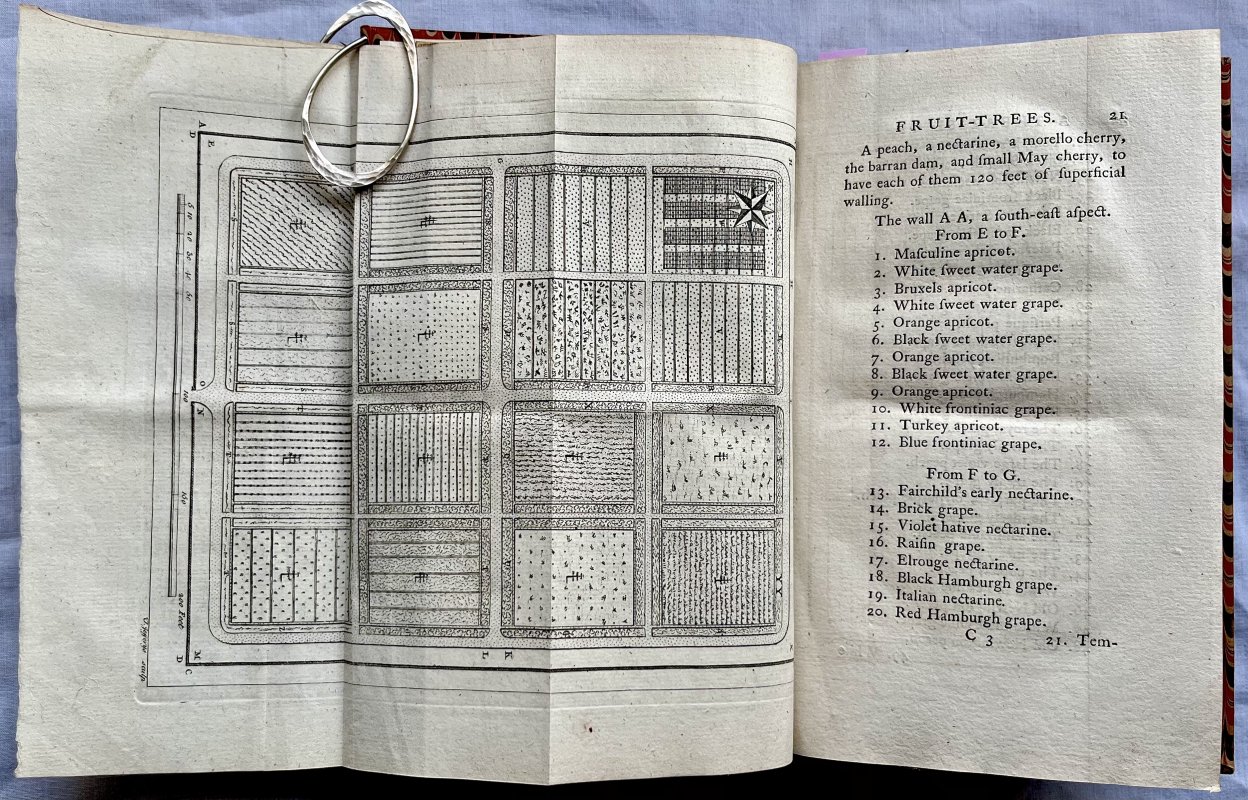 FRUIT-TREES. 21
A peach, a nectarine, a morello cherry,
the barran dam, and ſmall May cherry, to
have each of them 120 feet of ſuperficial
walling.
The wall A A, a ſouth-eaſt aſpect.
From E to F.
1. Maſculine apricot.
2. White ſweet water grape.
3. Bruxels apricot.
4. White ſweet water grape.
5. Orange apricot.
6. Black ſweet water grape.
7. Orange apricot.
8. Black ſweet water grape.
9. Orange apricot.
10. White frontiniac grape.
11. Turkey apricot.
12. Blue frontiniac grape.
From F to G.
13. Fairchild's early nectarine.
14. Brick grape.
15. Violet hative nectarine.
16. Raiſin grape.
17. Elrouge nectarine.
18. Black Hamburgh grape.
19. Italian nectarine.
20. Red Hamburgh grape.
C 3 21. Tem-
A
D
E
O
N
M
D
C
L
K
200 Feet